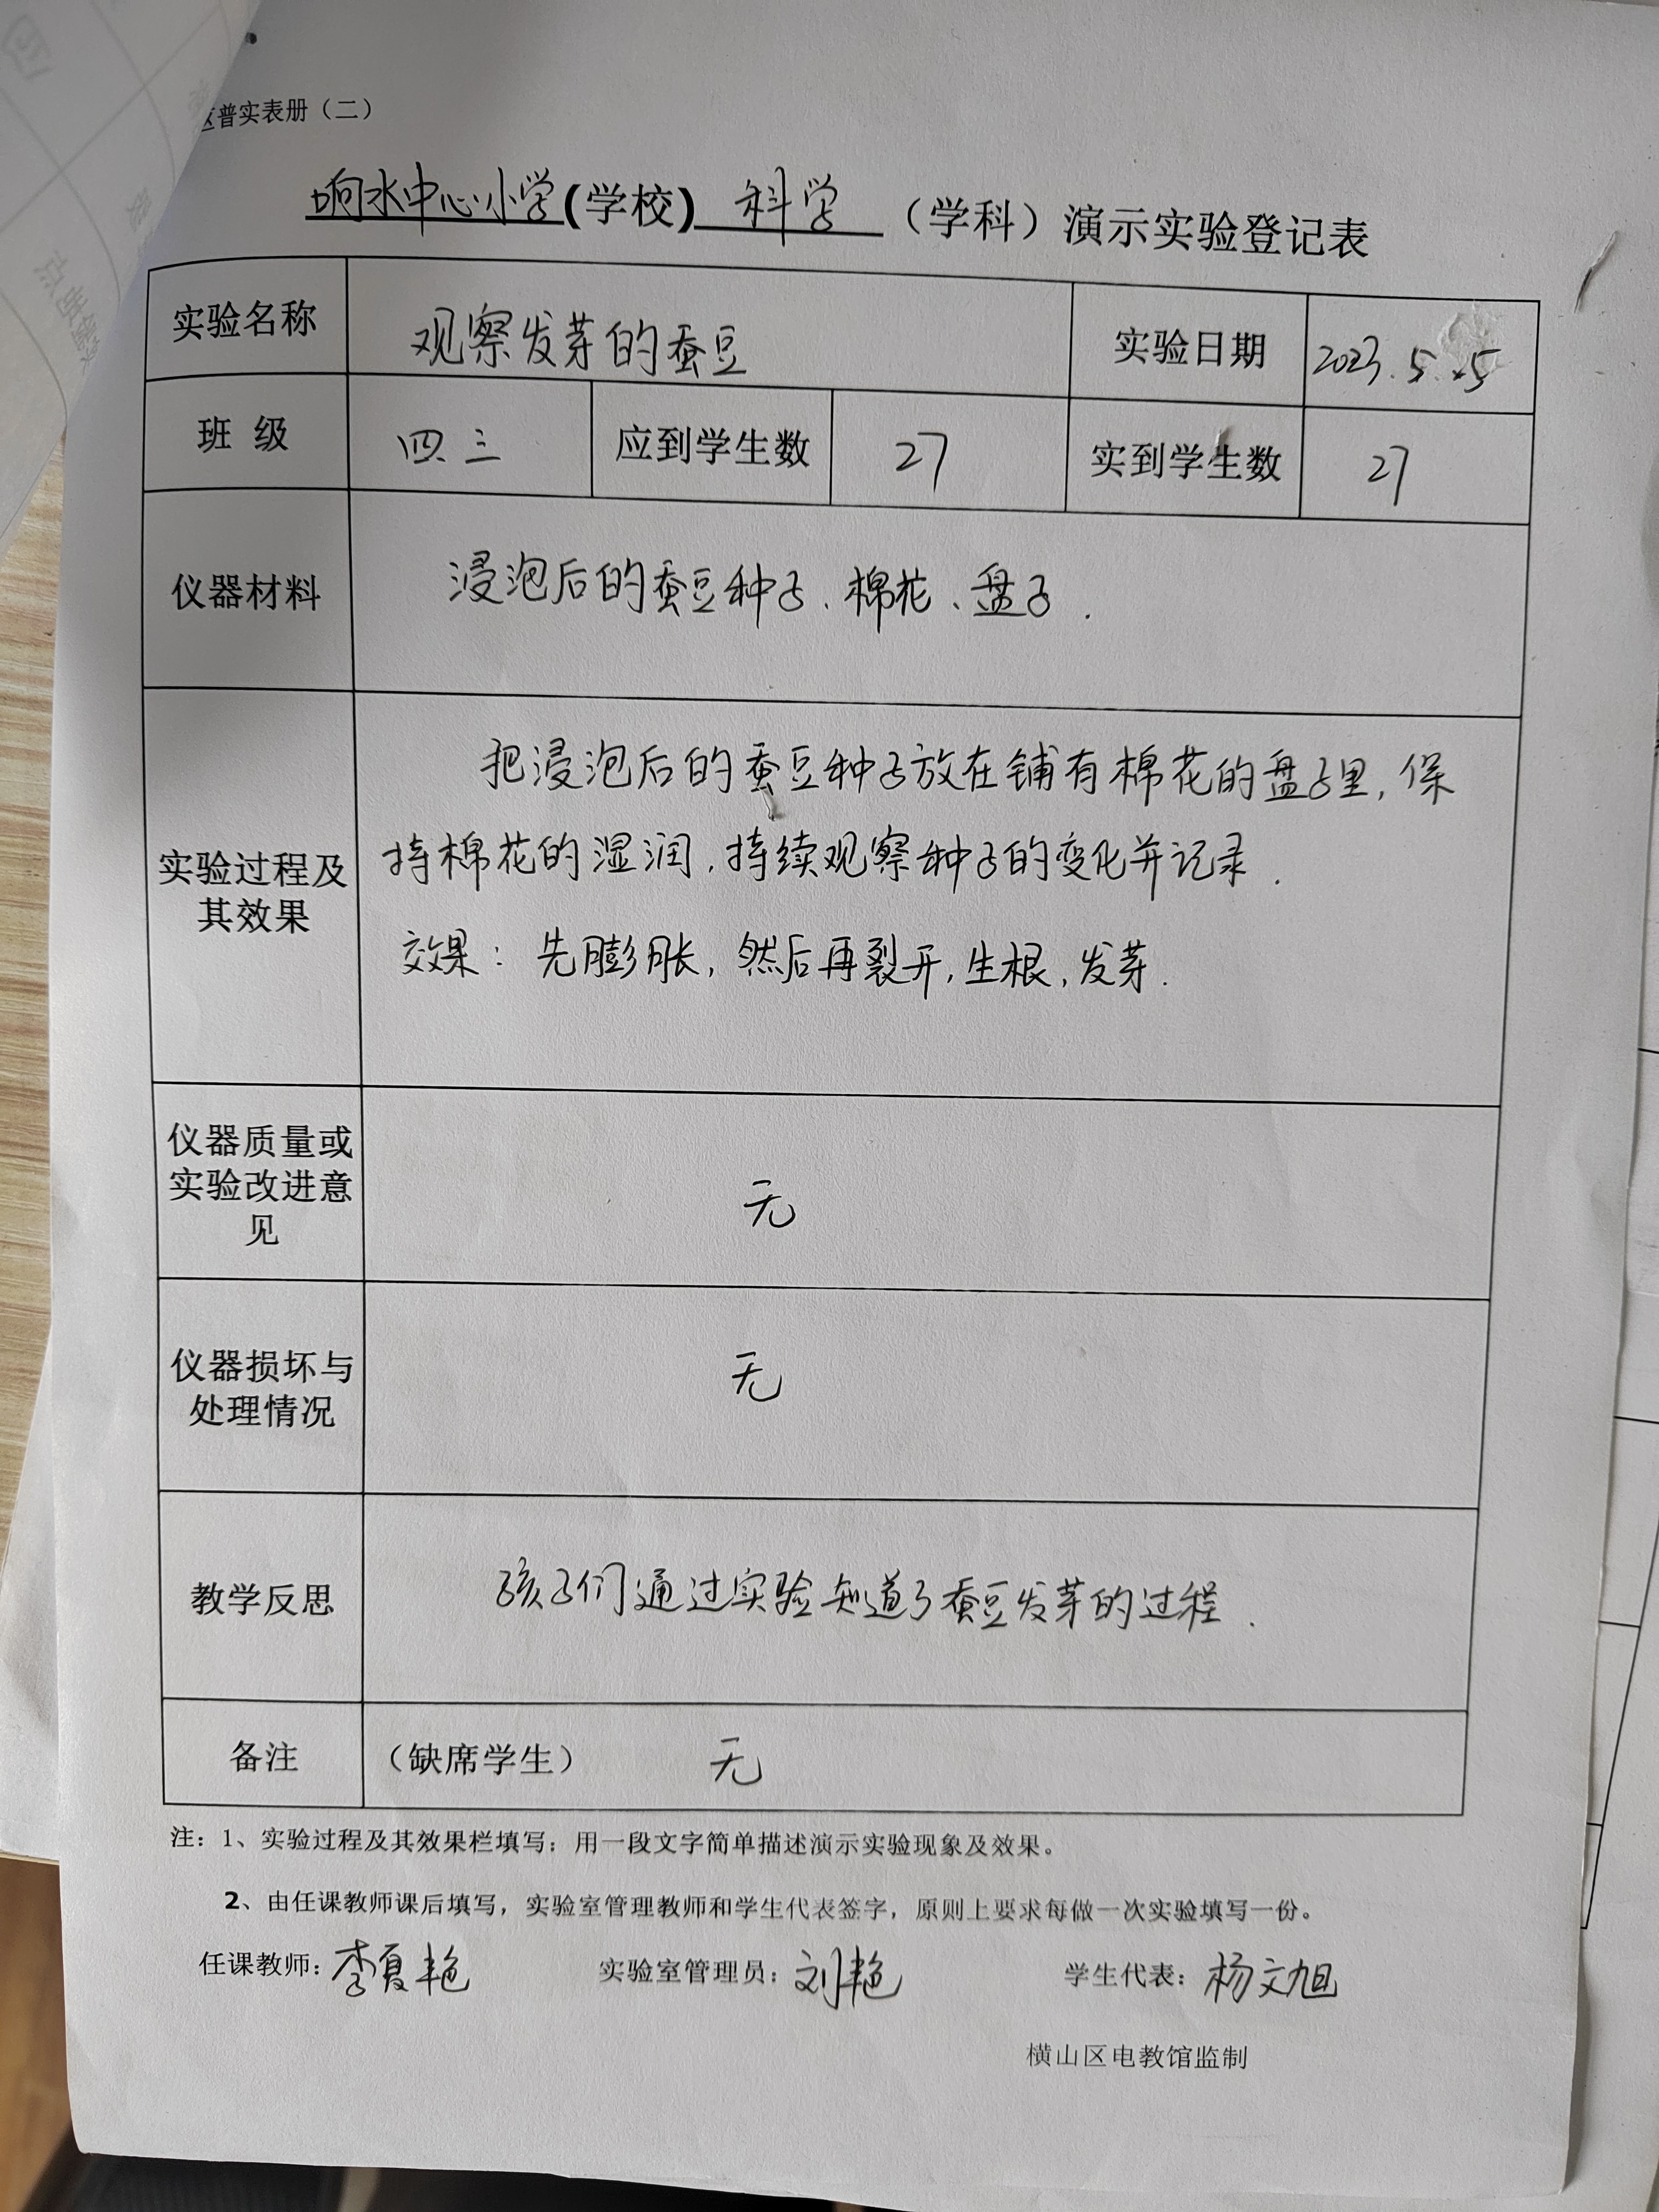 区普实表册（二）
响水中心小学(学校) 科学 （学科）演示实验登记表
实验名称 观察发芽的蚕豆 实验日期 2023.5.25
班 级 四.三 应到学生数 27 实到学生数 27
仪器材料 浸泡后的蚕豆种子、棉花、盘子.
把浸泡后的蚕豆种子放在铺有棉花的盘子里,保
实验过程及 持棉花的湿润,持续观察种子的变化并记录.
其效果
效果: 先膨胀,然后再裂开,生根,发芽.
仪器质量或
实验改进意
见
无
仪器损坏与
处理情况
无
教学反思 孩子们通过实验知道了蚕豆发芽的过程.
备注 （缺席学生） 无
注：1、实验过程及其效果栏填写：用一段文字简单描述演示实验现象及效果。
2、由任课教师课后填写，实验室管理教师和学生代表签字，原则上要求每做一次实验填写一份。
任课教师：李夏艳 实验室管理员：刘艳 学生代表：杨文旭
横山区电教馆监制